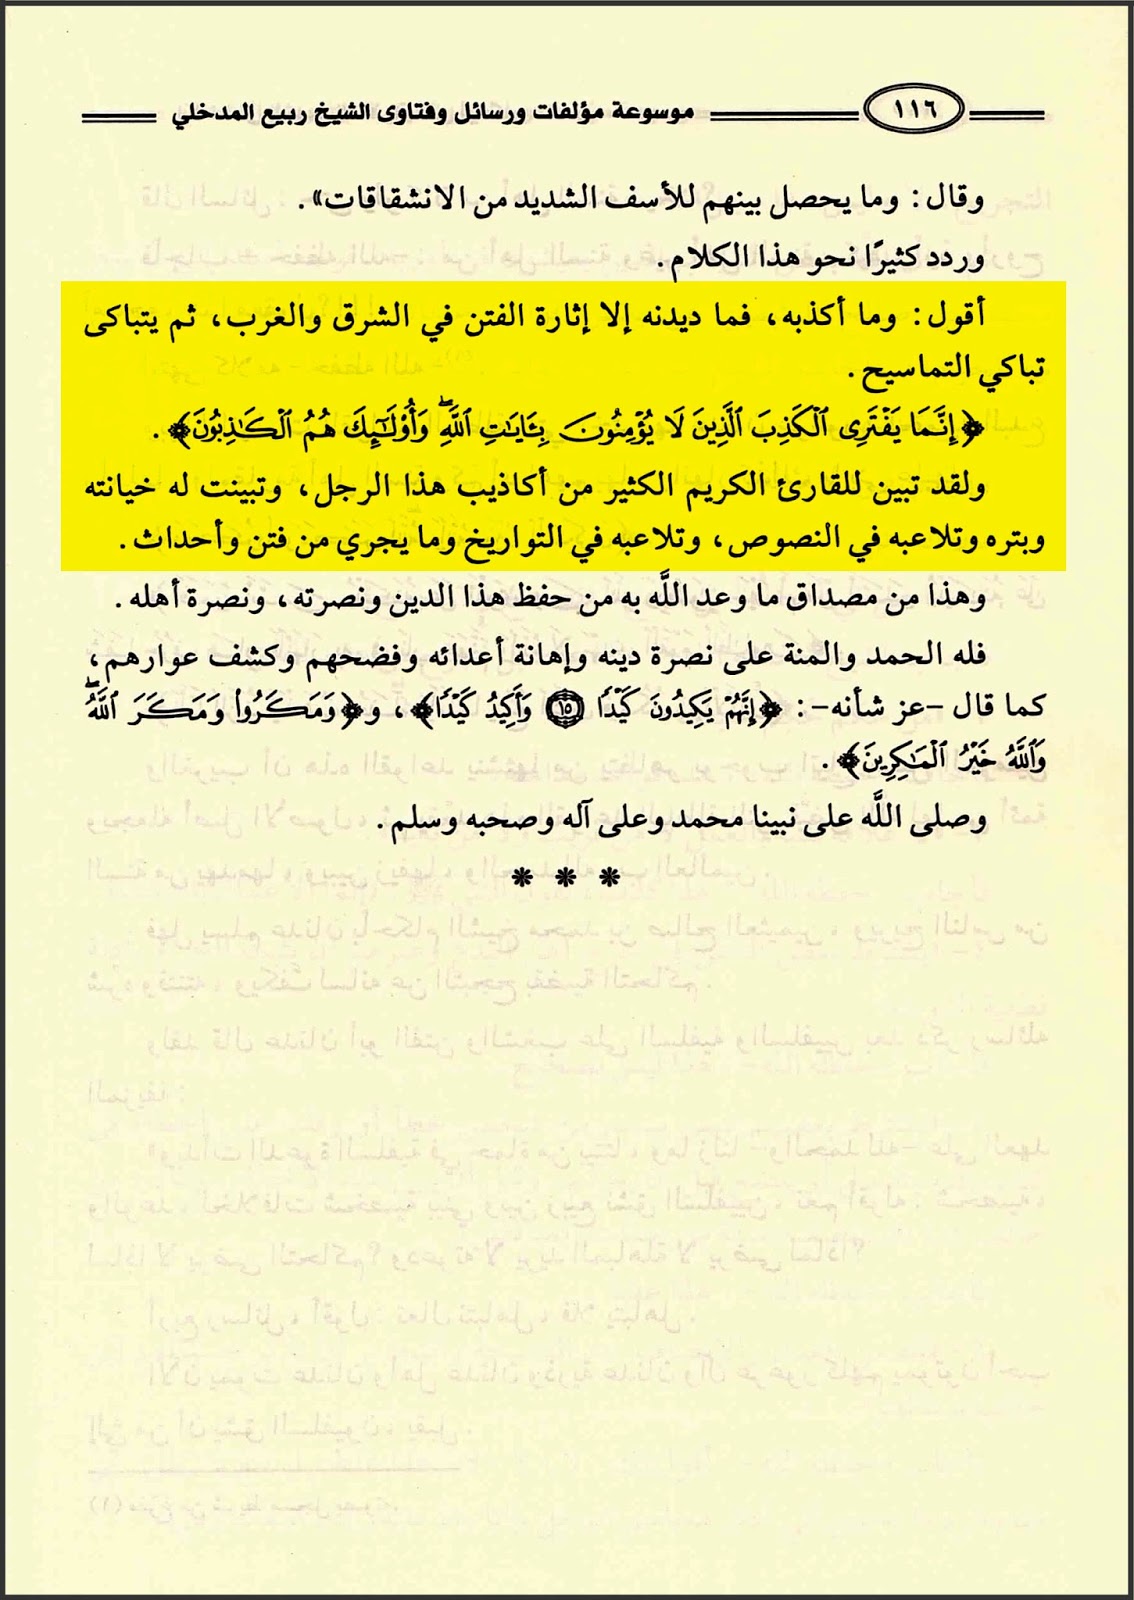 ١١٦ موسوعة مؤلفات ورسائل وفتاوى الشيخ ربيع المدخلي
وقال: وما يحصل بينهم للأسف الشديد من الانشقاقات».
وردد كثيرًا نحو هذا الكلام.
أقول: وما أكذبه، فما ديدنه إلا إثارة الفتن في الشرق والغرب، ثم يتباكى
تباكي التماسيح.
﴿إِنَّمَا يَفْتَرِى ٱلْكَذِبَ ٱلَّذِينَ لَا يُؤْمِنُونَ بِـَٔايَـٰتِ ٱللَّهِ ۖ وَأُو۟لَـٰٓئِكَ هُمُ ٱلْكَـٰذِبُونَ﴾.
ولقد تبين للقارئ الكريم الكثير من أكاذيب هذا الرجل، وتبينت له خيانته
وبتره وتلاعبه في النصوص، وتلاعبه في التواريخ وما يجري من فتن وأحداث.
وهذا من مصداق ما وعد اللَّه به من حفظ هذا الدين ونصرته، ونصرة أهله.
فله الحمد والمنة على نصرة دينه وإهانة أعدائه وفضحهم وكشف عوارهم،
كما قال -عز شأنه-: ﴿إِنَّهُمْ يَكِيدُونَ كَيْدًا ١٥ وَأَكِيدُ كَيْدًا﴾، و﴿وَمَكَرُوا۟ وَمَكَرَ ٱللَّهُ ۖ
وَٱللَّهُ خَيْرُ ٱلْمَـٰكِرِينَ﴾.
وصلى اللَّه على نبينا محمد وعلى آله وصحبه وسلم.
* * *